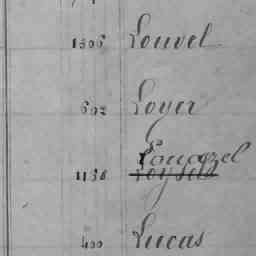 1306 Louvel
602 Loyer
Loupzel
1136 Loysel
400 Lucas